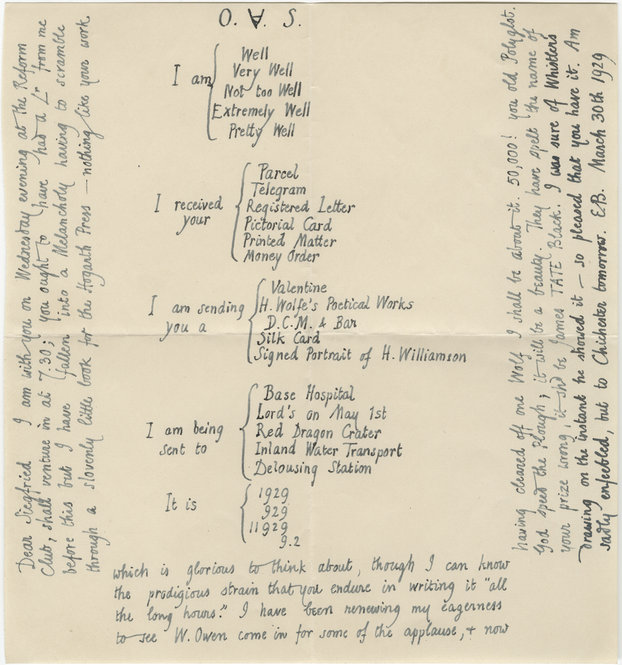 S. A. O.
I am
Well
Very Well
Not too Well
Extremely Well
Pretty Well
I received
your
Parcel
Telegram
Registered Letter
Pictorial Card
Printed Matter
Money Order
I am sending
you a
Valentine
H. Wolfe's Poetical Works
D.C.M. & Bar
Silk Card
Signed Portrait of H. Williamson
I am being
sent to
Base Hospital
Lord's on May 1st
Red Dragon Crater
Inland Water Transport
Delousing Station
It is
1929
929
11929
9.2
Dear Siegfried I am with you on Wednesday evening at the Reform
Club, shall venture in at 7.30; you ought to have had a Lr from me
before this but I have fallen into a Melancholy having to scramble
through a slovenly little book for the Hogarth Press — nothing like your work
which is glorious to think about, though I can know
the prodigious strain that you endure in writing it "all
the long hours." I have been renewing my eagerness
to see W. Owen come in for some of the applause, & now
having cleared off one Wolf I shall be about it. 50,000! you old Polyglot.
God speed the Plough; it will be a beauty. They have spelt the name of
your prize wrong; it shd be James TATE Black. I was sure of Whistler's
drawing on the instant he showed it — so pleased that you have it. Am
sadly enfeebled, but to Chichester tomorrow. E.B. March 30th 1929